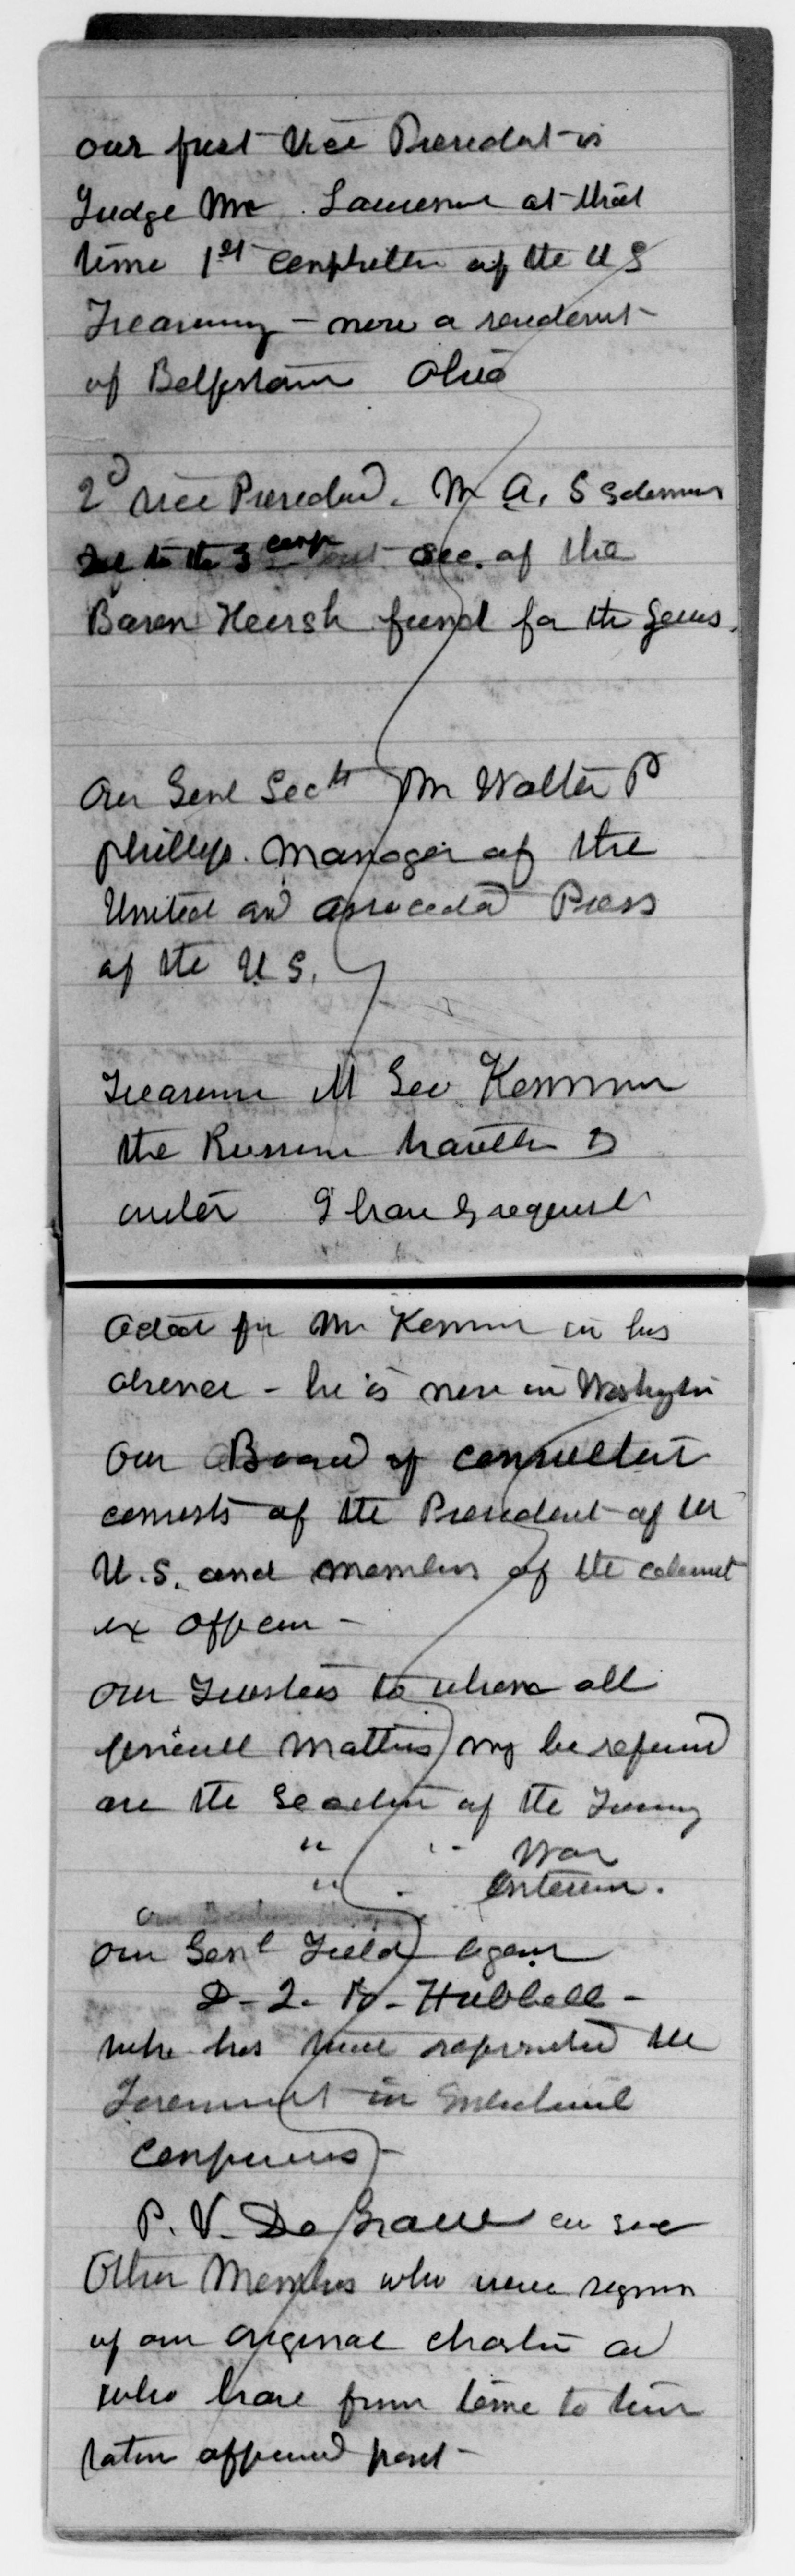 our first Vice President is
Judge Wm. Lawrence at that
time 1st Comptroller of the U S
Treasury - now a resident
of Bellfontaine Ohio
2d Vice President. Mr A. S Solomons
Sec. of the
Baron Heersh fund for the Jews.
Our Genl Secty Mr Walter P
Phillips. Manager of the
United and Associated Press
of the U.S.
Treasurer Mr Geo Kennan
the Russian traveller &
writer I have frequently
acted for Mr Kennan in his
absence - he is now in Washington
Our Board of consultation
consists of the President of the
U.S. and members of the cabinet
ex officio -
Our Trustees to whom all
financial matters may be referred
are the Secretary of the Treasury
" " War
" " Interior.
Our Genl Field Agent
D- J. B- Hubbell -
who has twice represented the
Government in International
Conferences -
P. V. DeGraw
Other Members who were signers
of our original charter and
who have from time to time
taken official part -